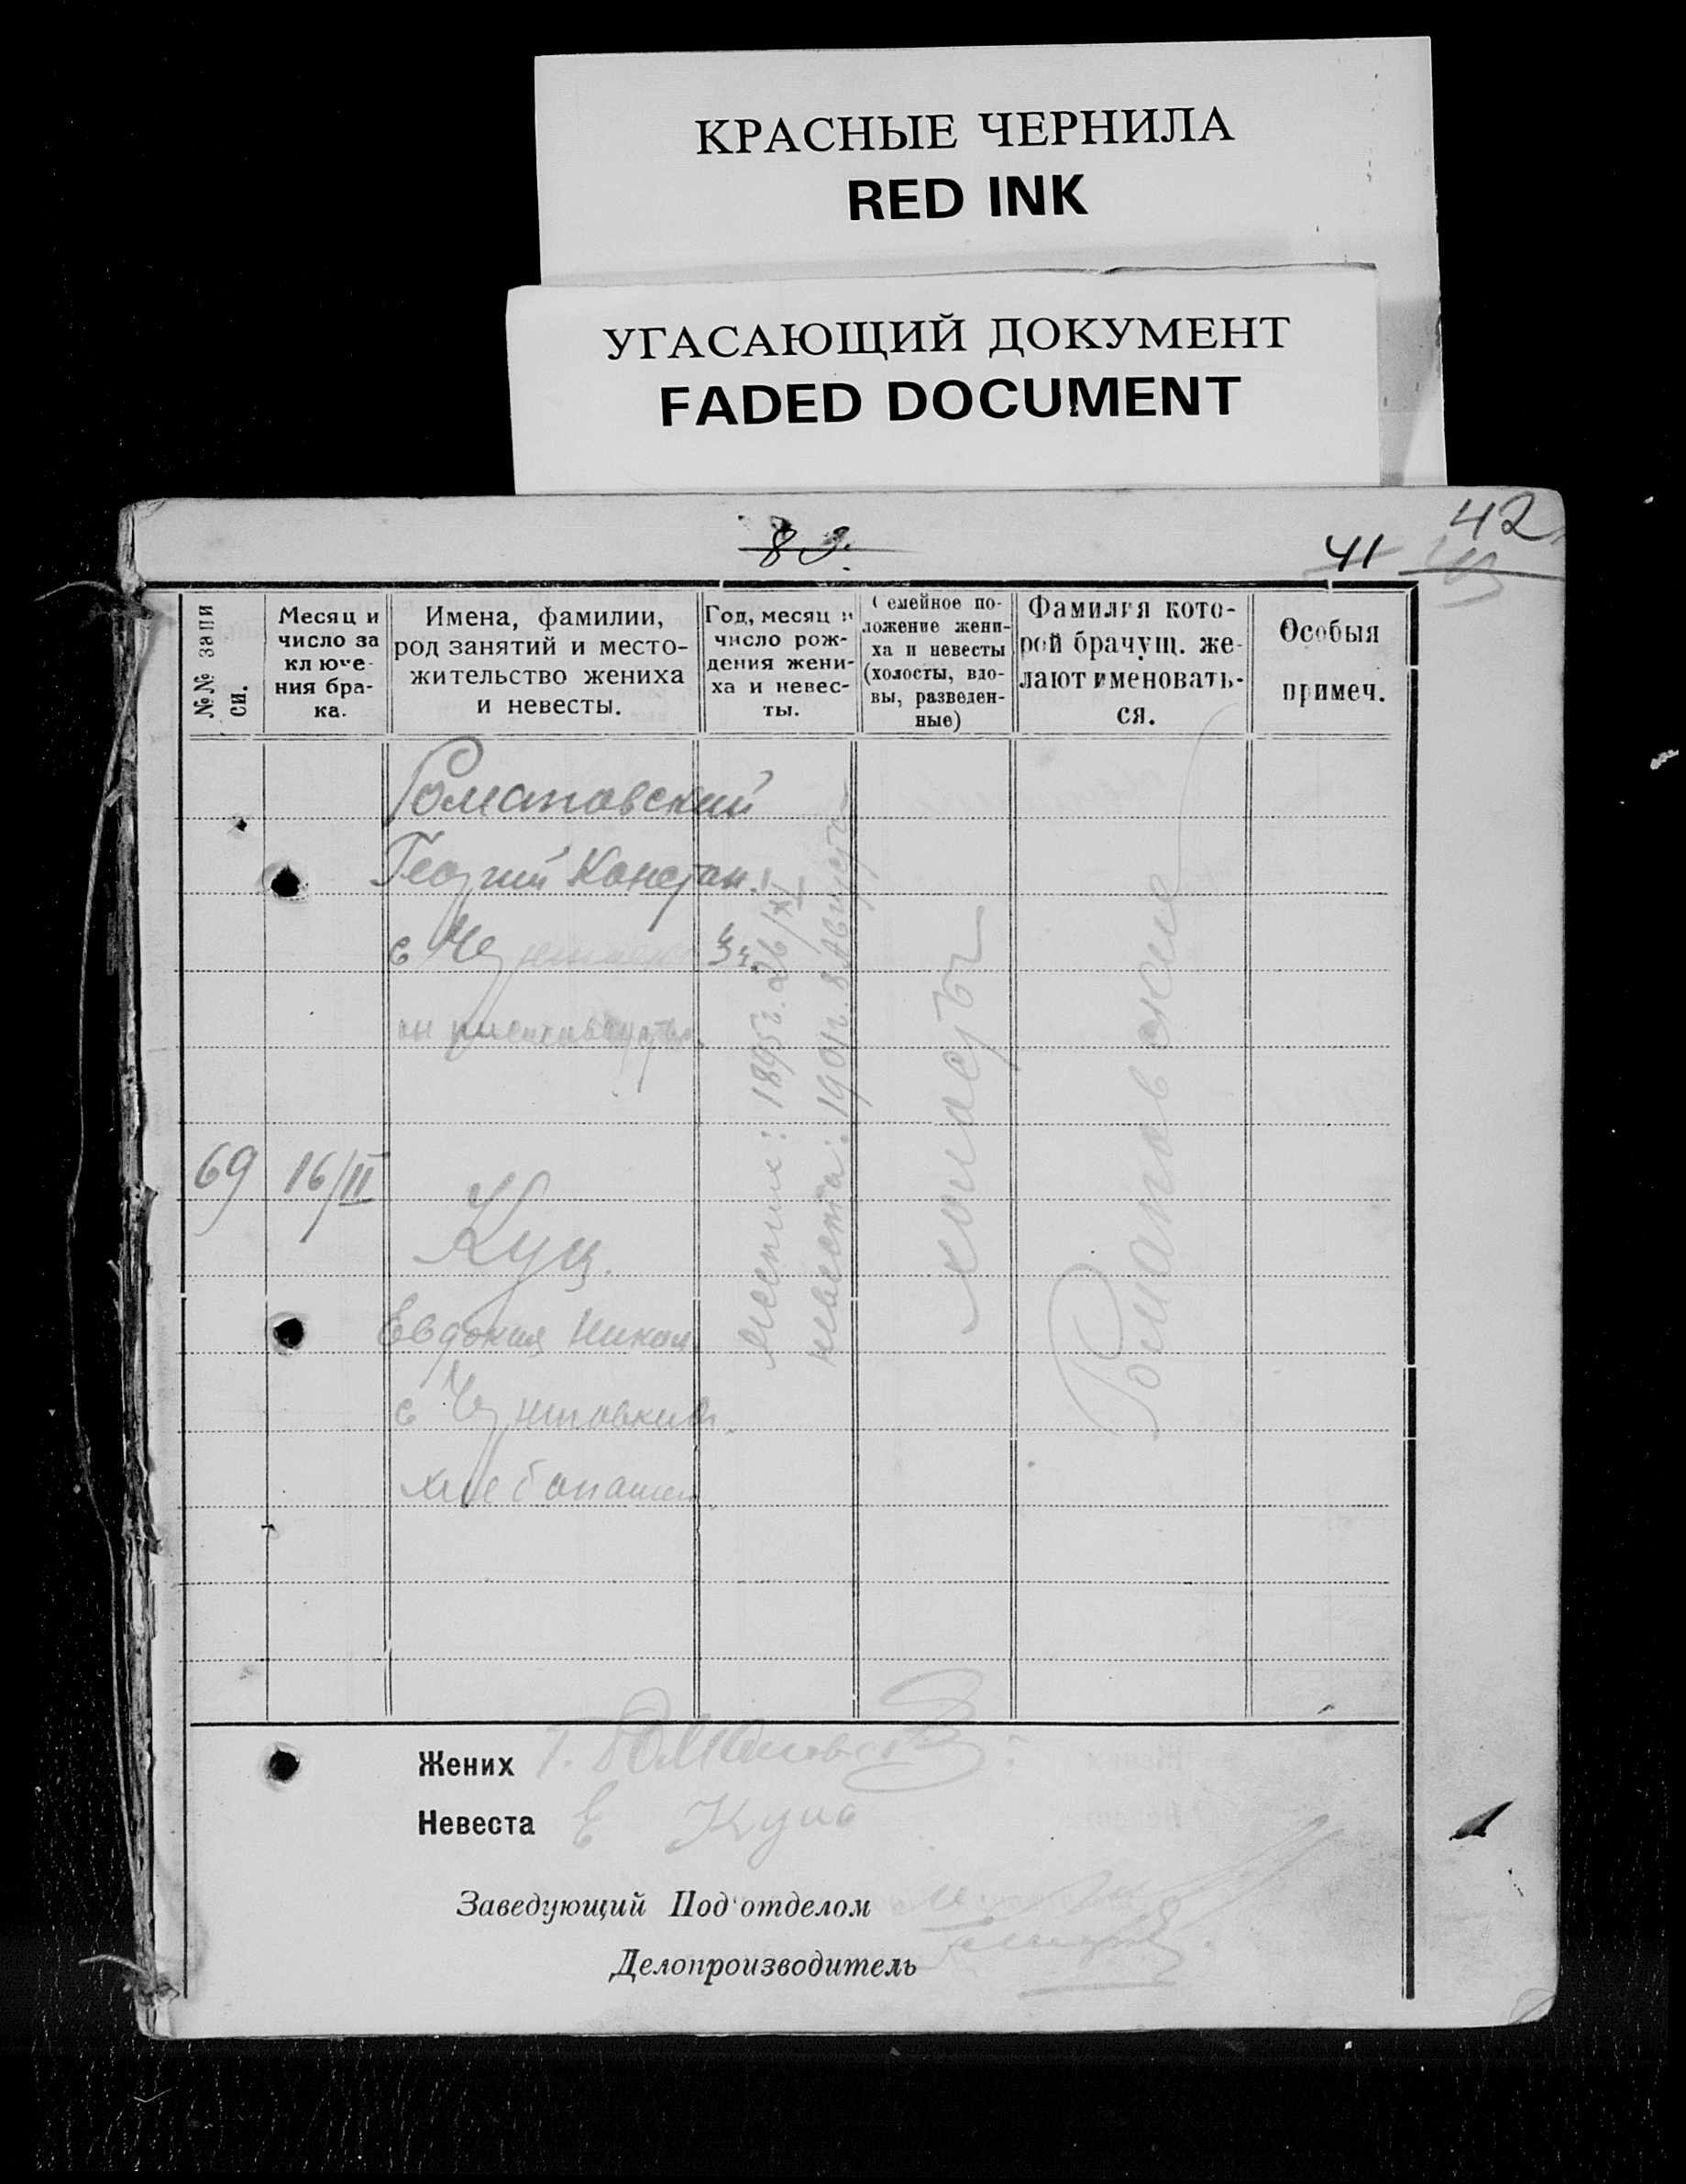 КРАСНЫЕ ЧЕРНИЛА
RED INK
УГАСАЮЩИЙ ДОКУМЕНТ
FADED DOCUMENT
42
41
№№ запи
си.
Месяц и
число за
ключе-
ния бра-
ка.
Имена, фамилии,
род занятий и место-
жительство жениха
и невесты.
Год, месяц и
число рож-
дения жени-
ха и невес-
ты.
Семейное по-
ложение жени-
ха и невесты
(холосты, вдо-
вы, разведен-
ные)
Фамилия кото-
рой брачущ. же-
лают именовать-
ся.
Особыя
примеч.
Романовский
Георгий Констан.
с
69
16/II
Куц.
Евдокия Никол.
с
хлебопашец.
1895г. 26/XI
невеста: 1901г. 8 Августа
холосты
Романовские
Жених Г. Романовский
Невеста Е Куц
Заведующий Под'отделом
Делопроизводитель